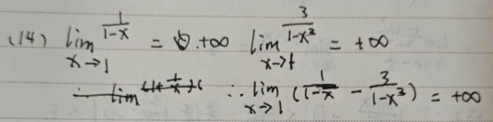 (14) lim x→1 1/(1-x) = +∞ lim x→1 3/(1-x²) = +∞
∴ lim x→1 (1/(1-x) - 3/(1-x³)) = +∞